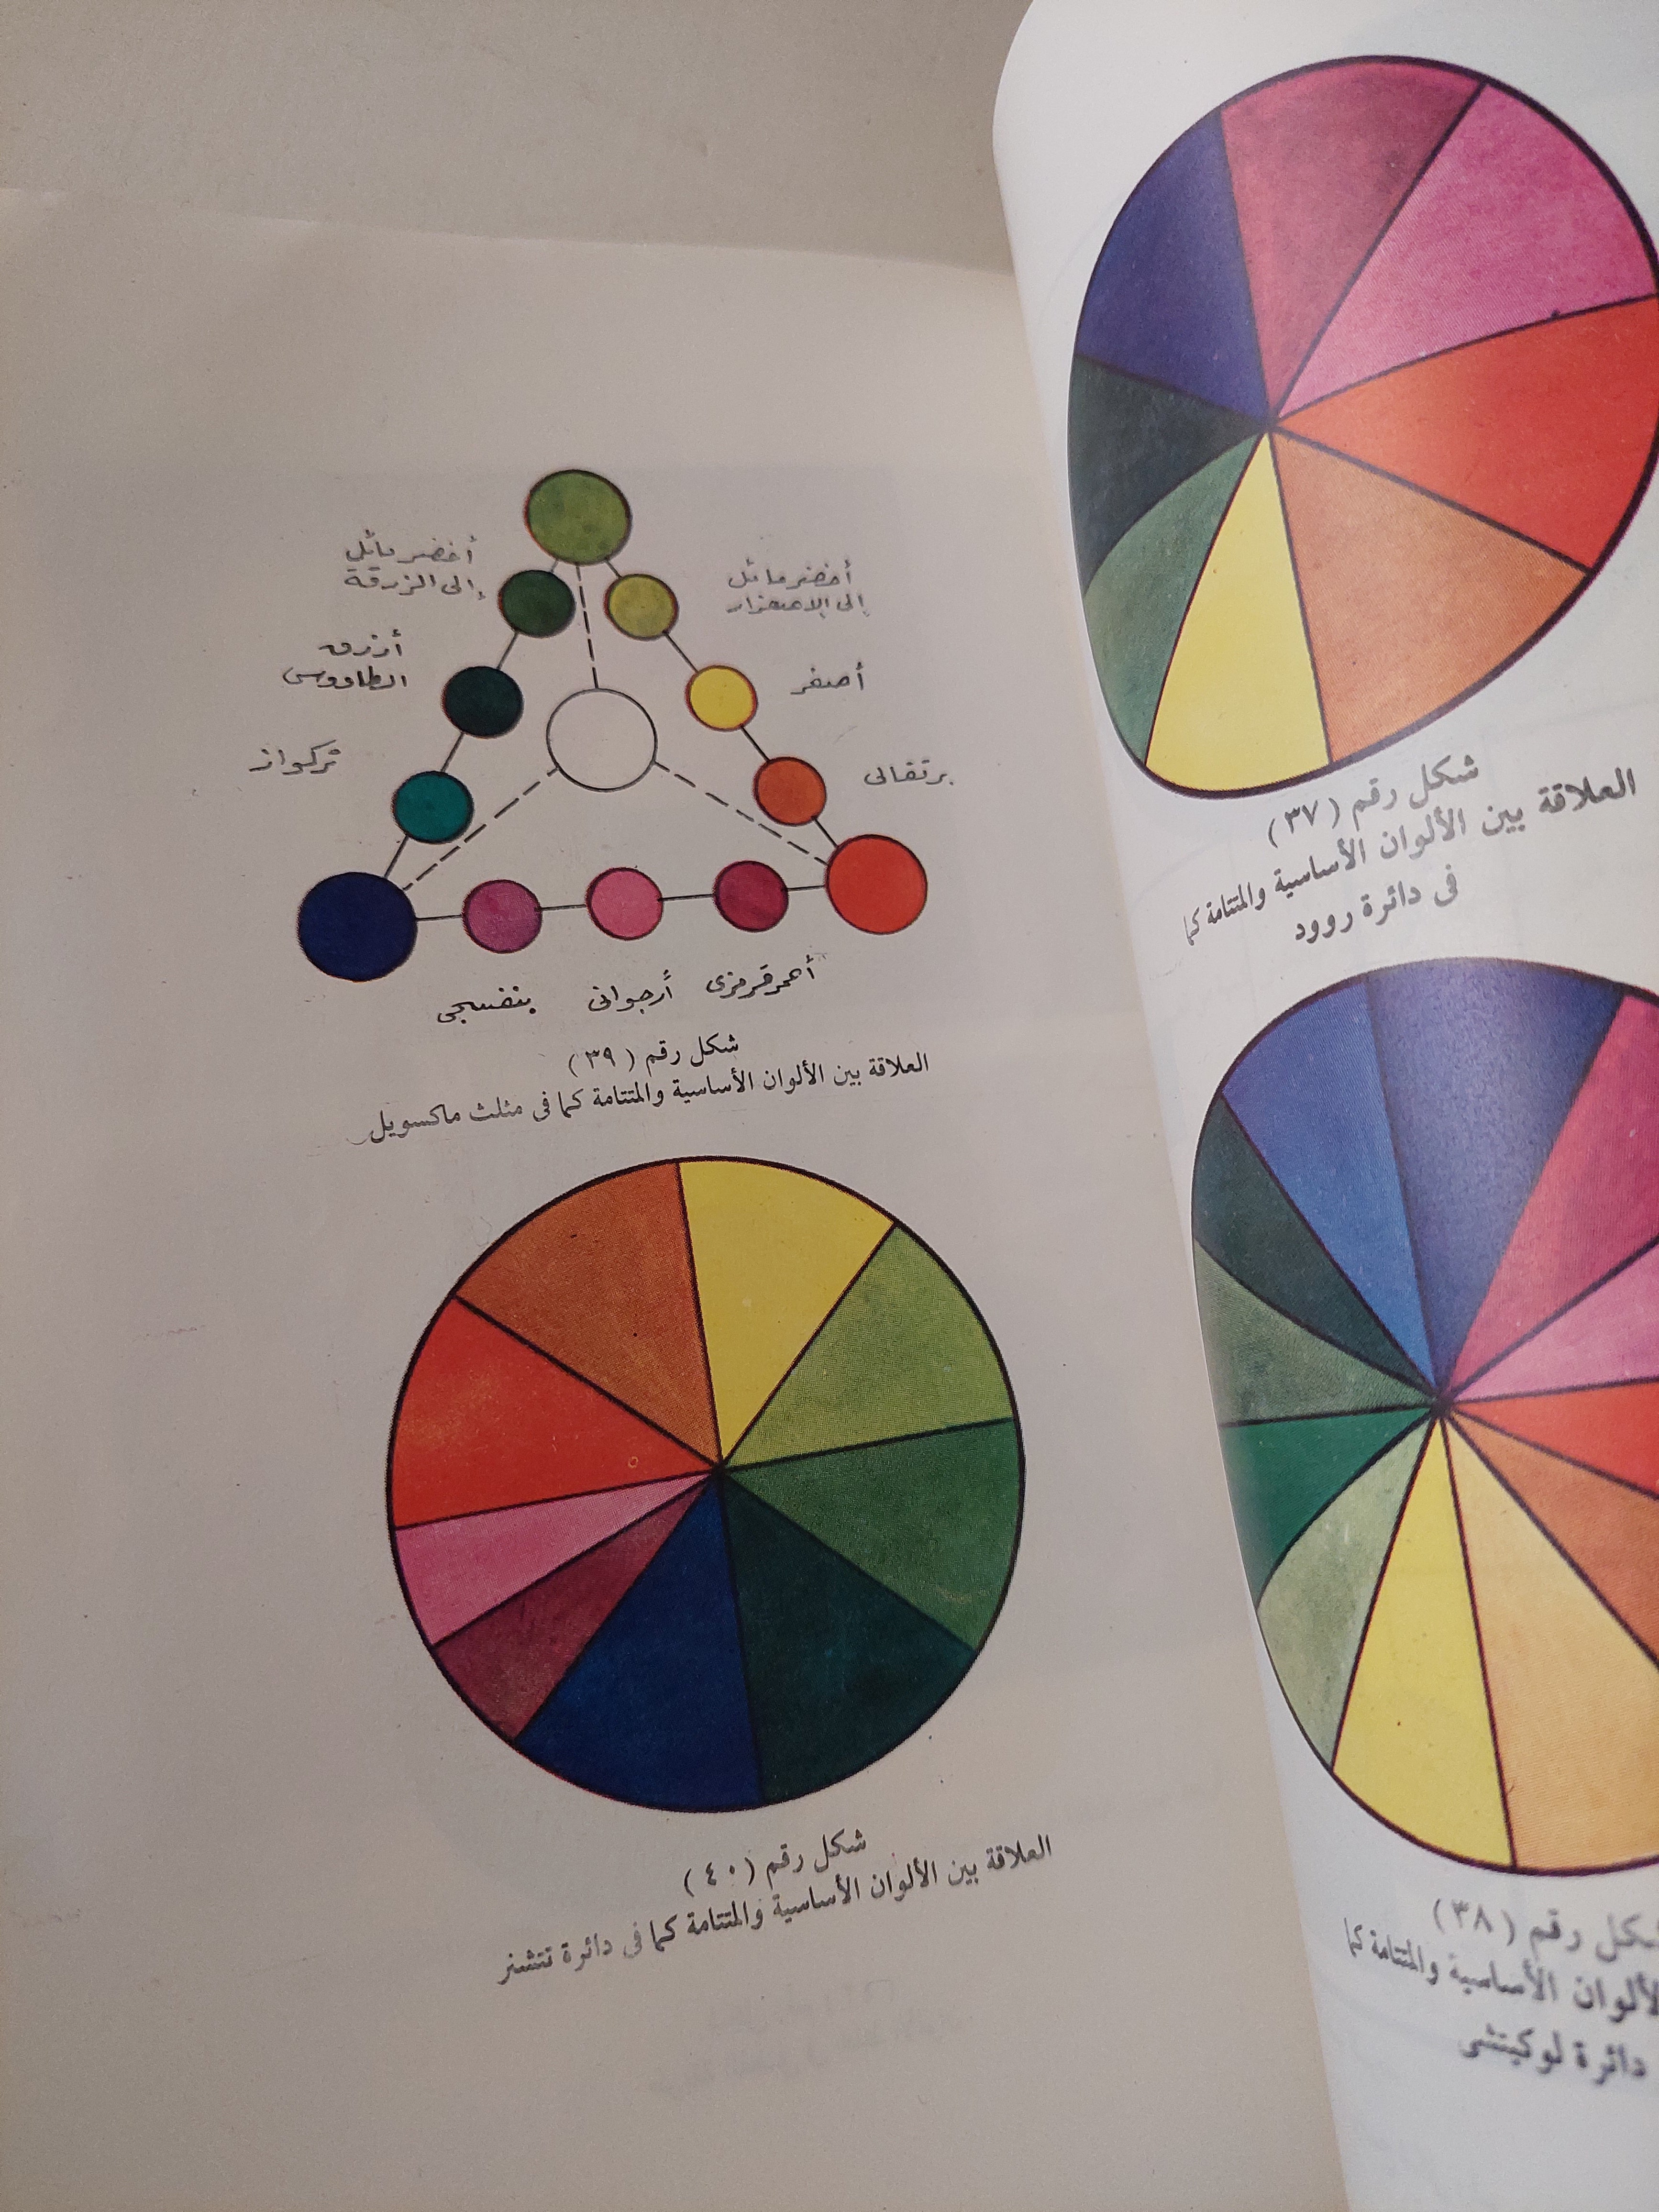 أخضر مائل
إلى الزرقة
أخضر مائل
إلى الإصفرار
أزرق
الطاووس
أصفر
تركواز
برتقالى
بنفسجى
أرجوانى
أحمر قرمزى
شكل رقم ( ٣٩ )
العلاقة بين الألوان الأساسية والمتتامة كما فى مثلث ماكسويل
شكل رقم ( ٤٠ )
العلاقة بين الألوان الأساسية والمتتامة كما فى دائرة تتشنر
شكل رقم ( ٣٧ )
العلاقة بين الألوان الأساسية والمتتامة كما
فى دائرة روود
شكل رقم ( ٣٨ )
الألوان الأساسية والمتتامة كما
دائرة لوكيتشى